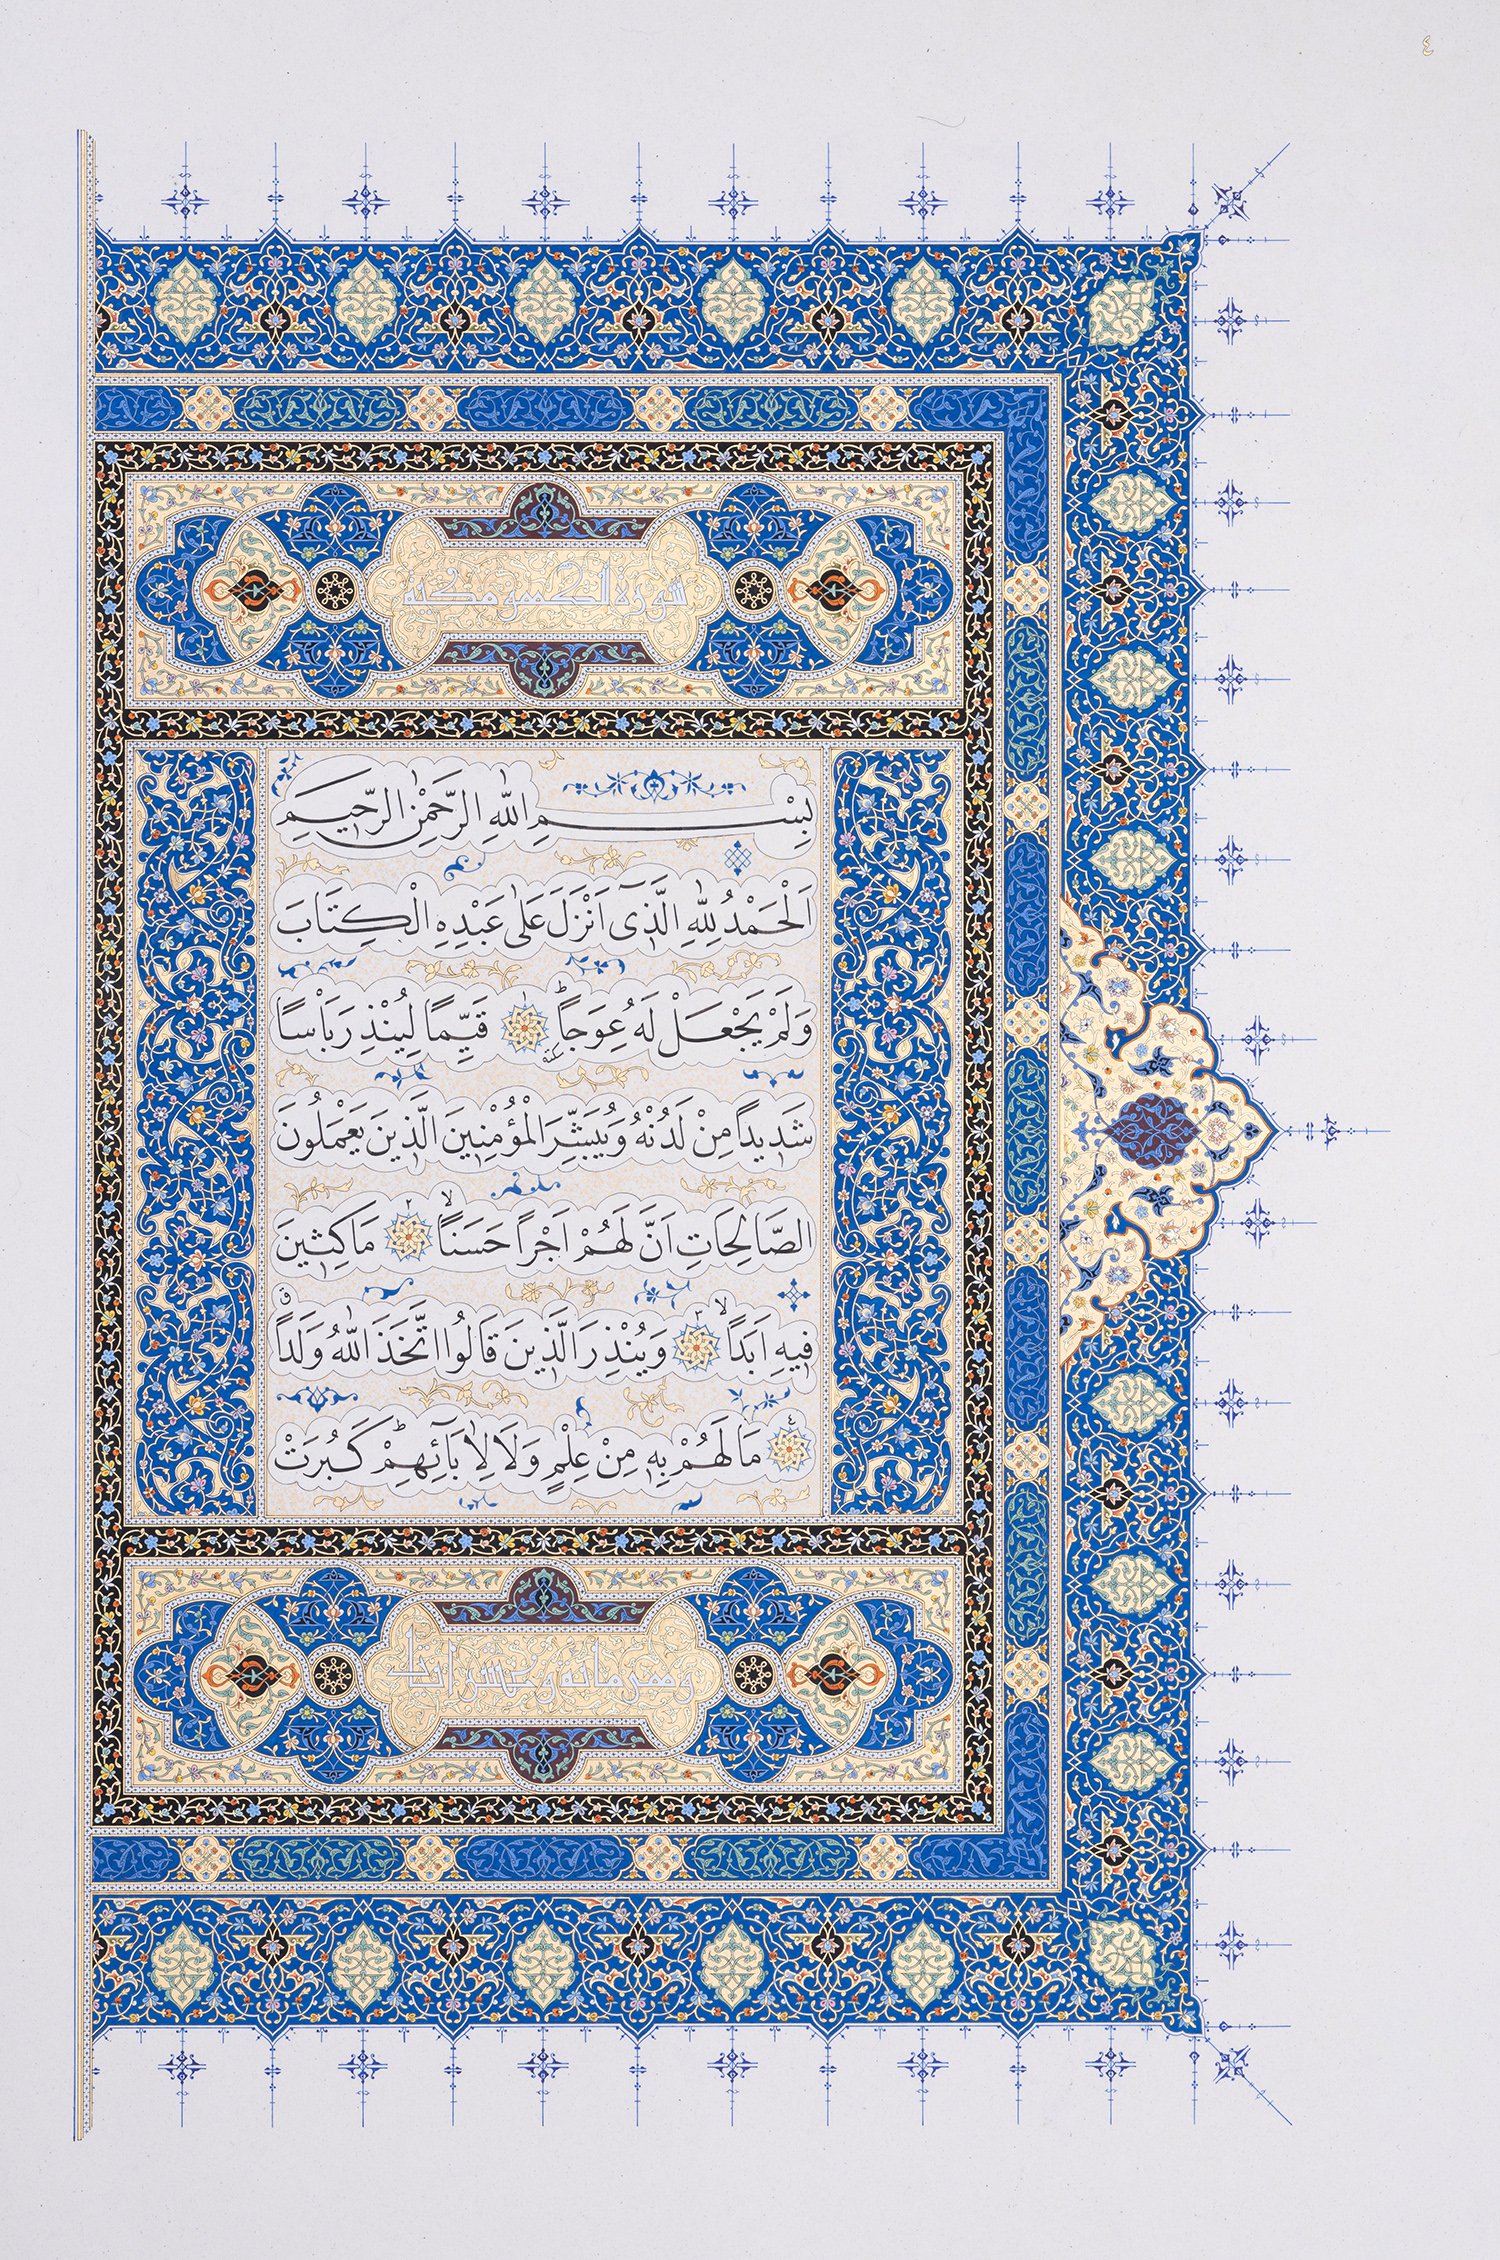 ٤
سورة الكهف مكية
بِسْمِ اللهِ الرَّحْمٰنِ الرَّحِيمِ
اَلْحَمْدُ لِلّٰهِ الَّذِىٓ اَنْزَلَ عَلٰى عَبْدِهِ الْكِتَابَ
وَلَمْ يَجْعَلْ لَهُ عِوَجًاؕ ١ قَيِّمًا لِيُنْذِرَ بَأْسًا
شَدِيدًا مِنْ لَدُنْهُ وَيُبَشِّرَ الْمُؤْمِنِينَ الَّذِينَ يَعْمَلُونَ
الصَّالِحَاتِ اَنَّ لَهُمْ اَجْرًا حَسَنًاۙ ٢ مَاكِثِينَ
فِيهِ اَبَدًاۙ ٣ وَيُنْذِرَ الَّذِينَ قَالُوا اتَّخَذَ اللّٰهُ وَلَدًا ق
٤ مَا لَهُمْ بِهٖ مِنْ عِلْمٍ وَلَا لِاٰبَآئِهِمْؕ كَبُرَتْ
وهى مائة وعشر ايات